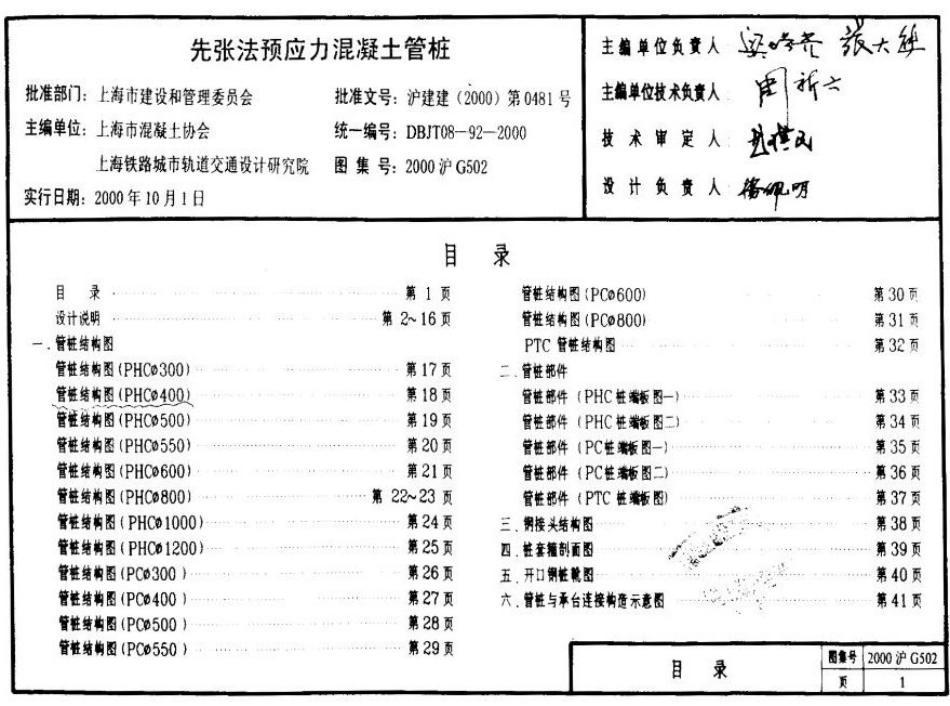 先张法预应力混凝土管桩
批准部门：上海市建设和管理委员会
批准文号：沪建建（2000）第0481号
主编单位：上海市混凝土协会
统一编号：DBJT08-92-2000
上海铁路城市轨道交通设计研究院
图集号：2000沪G502
实行日期：2000年10月1日
主编单位负责人
主编单位技术负责人
技术审定人
设计负责人
目 录
目 录 第 1 页
设计说明 第 2~16 页
一．管桩结构图
管桩结构图(PHCø300) 第 17 页
管桩结构图(PHCø400) 第 18 页
管桩结构图(PHCø500) 第 19 页
管桩结构图(PHCø550) 第 20 页
管桩结构图(PHCø600) 第 21 页
管桩结构图(PHCø800) 第 22~23 页
管桩结构图(PHCø1000) 第 24 页
管桩结构图(PHCø1200) 第 25 页
管桩结构图(PCø300) 第 26 页
管桩结构图(PCø400) 第 27 页
管桩结构图(PCø500) 第 28 页
管桩结构图(PCø550) 第 29 页
管桩结构图(PCø600) 第 30 页
管桩结构图(PCø800) 第 31 页
PTC 管桩结构图 第 32 页
二．管桩部件
管桩部件（PHC桩端板图一） 第 33 页
管桩部件（PHC桩端板图二） 第 34 页
管桩部件（PC桩端板图一） 第 35 页
管桩部件（PC桩端板图二） 第 36 页
管桩部件（PTC桩端板图） 第 37 页
三．钢接头结构图 第 38 页
四．桩套箍剖面图 第 39 页
五．开口钢桩靴图 第 40 页
六．管桩与承台连接构造示意图 第 41 页
目 录
图集号 2000沪G502
页 1